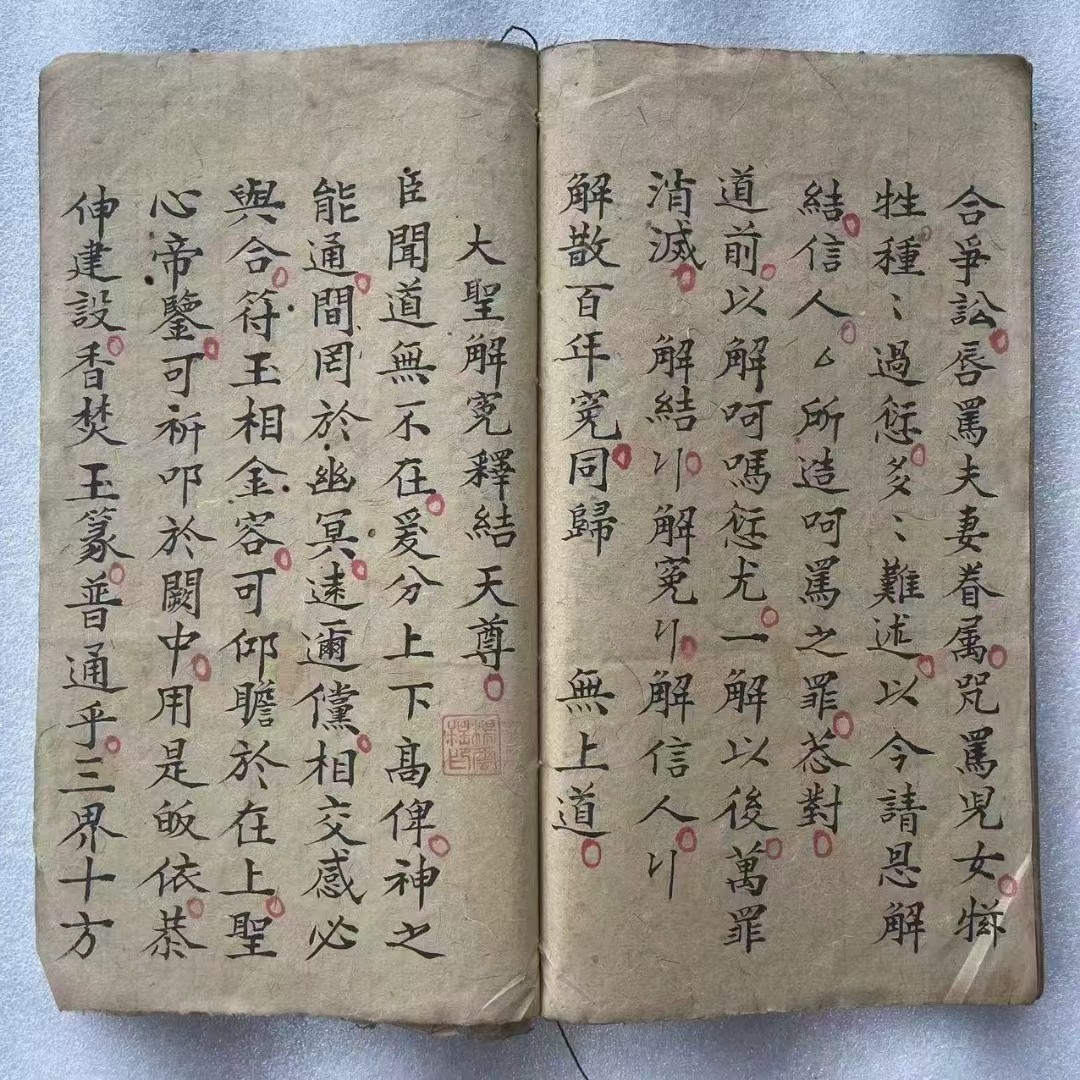 合爭訟唇罵夫妻眷属咒罵児女
牲種〻過愆多〻難述以今請恳解
結信人厶所造呵罵之罪苾對
道前以解呵嗎愆尤一解以後萬罪
消滅解結刂解冤刂解信人刂
解散百年冤同歸無上道
大聖解冤釋結天尊
臣聞道無不在爰分上下高俾神之
能通間罔於幽冥遠邇儻相交感必
與合符玉相金容可仰瞻於在上聖
心帝鑒可祈叩於闕中用是皈依恭
伸建設香焚玉篆普通乎三界十方